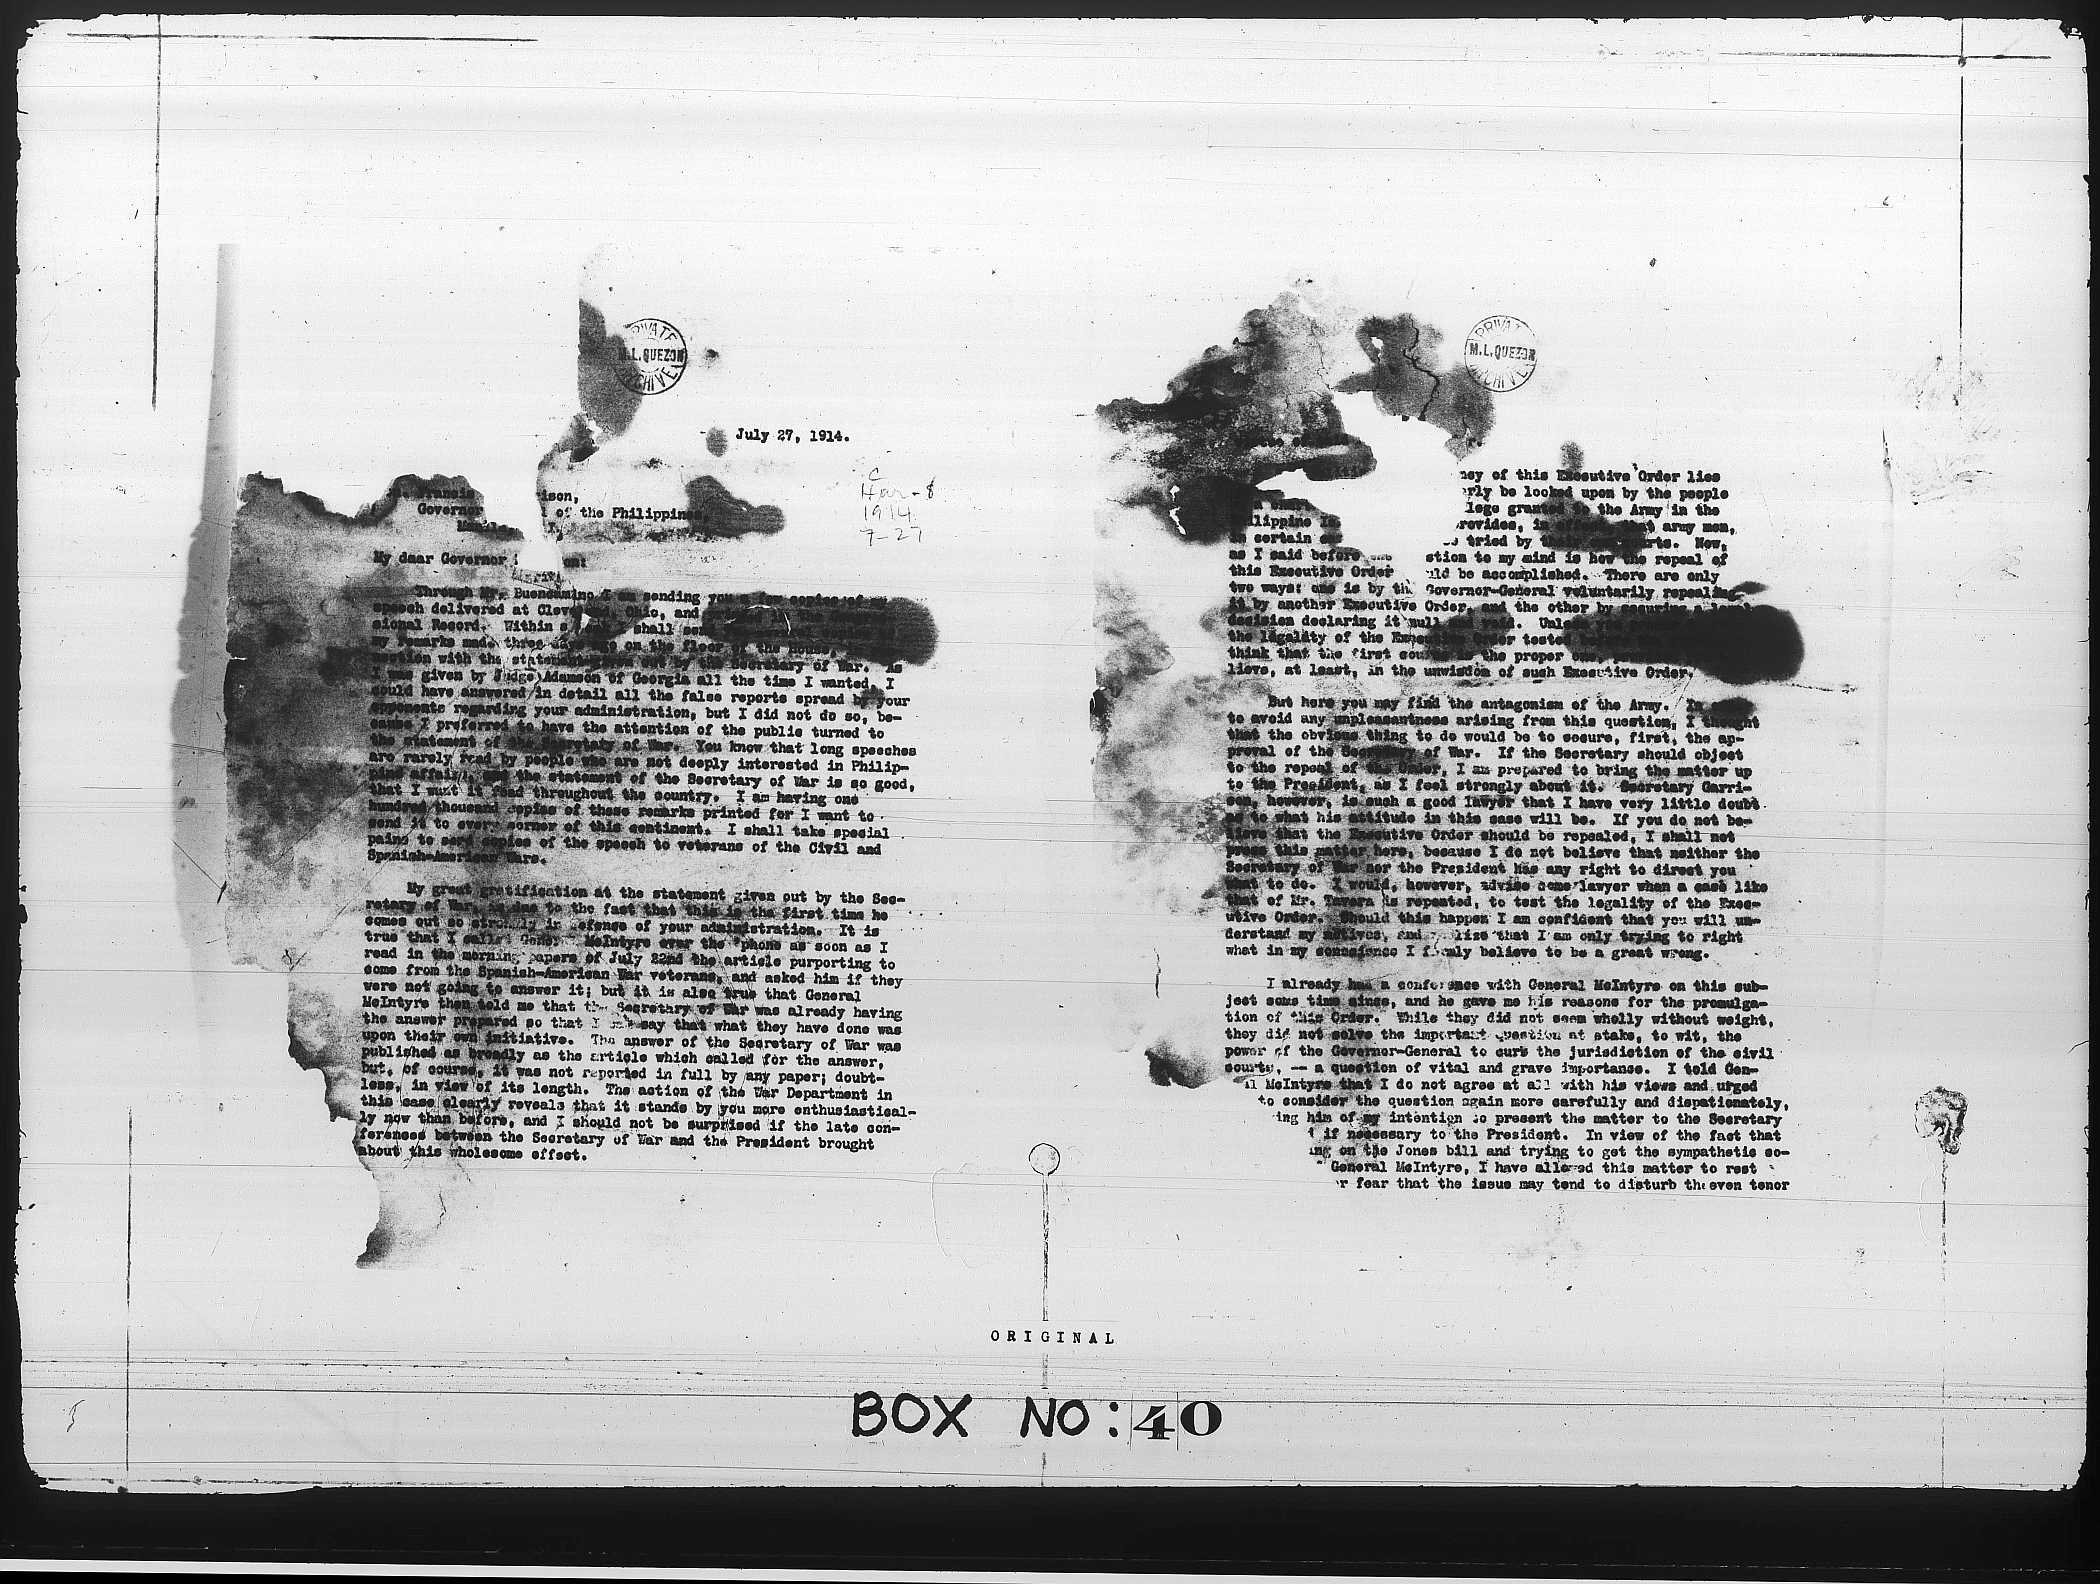 PRIVATE
M.L.QUEZON
ARCHIVE
July 27, 1914.
C
Har-8
1914
7-27
Francis ison,
Governor l of the Philippines,
Manila, I.
My dear Governor on:
Through Mr. Buencamino I am sending you a few copies of my
speech delivered at Cleveland, Ohio, and in the
sional Record. Within a shall sen
my remarks made three days ago on the floor of the House,
nection with the statement given out by the Secretary of War. As
I was given by Judge Adamson of Georgia all the time I wanted, I
could have answered in detail all the false reports spread by your
opponents regarding your administration, but I did not do so, be-
cause I preferred to have the attention of the public turned to
the statement of the Secretary of War. You know that long speeches
are rarely read by people who are not deeply interested in Philip-
pine affairs, and the statement of the Secretary of War is so good,
that I want it read throughout the country. I am having one
hundred thousand copies of these remarks printed for I want to
send it to every corner of this continent. I shall take special
pains to send copies of the speech to veterans of the Civil and
Spanish-American Wars.
My great gratification at the statement given out by the Sec-
retary of War is due to the fact that this is the first time he
comes out so strongly in defense of your administration. It is
true that I called Gene McIntyre over the 'phone as soon as I
read in the morning papers of July 22nd the article purporting to
come from the Spanish-American War veterans, and asked him if they
were not going to answer it; but it is also true that General
McIntyre then told me that the Secretary of War was already having
the answer prepared so that I can say that what they have done was
upon their own initiative. The answer of the Secretary of War was
published as broadly as the article which called for the answer,
but, of course, it was not reported in full by any paper; doubt-
less, in view of its length. The action of the War Department in
this case clearly reveals that it stands by you more enthusiastical-
ly now than before, and I should not be surprised if the late con-
ferences between the Secretary of War and the President brought
about this wholesome effect.
PRIVATE
M.L.QUEZON
ARCHIVE
r.
ncy of this Executive Order lies
rly be looked upon by the people
lege granted to the Army in the
ilippine Is rovides, in effect, that army men,
in certain cas tried by their courts. Now,
as I said before stion to my mind is how the repeal of
this Executive Order uld be accomplished. There are only
two ways: one is by the Governor-General voluntarily repealing
it by another Executive Order, and the other by securing a
decision declaring it null and void. Unless you
the legality of the Executive Order tested
think that the first course is the proper one,
lieve, at least, in the unwisdom of such Executive Order.
But here you may find the antagonism of the Army. In
to avoid any unpleasantness arising from this question, I thought
that the obvious thing to do would be to secure, first, the ap-
proval of the Secretary of War. If the Secretary should object
to the repeal of the Order, I am prepared to bring the matter up
to the President, as I feel strongly about it. Secretary Garri-
son, however, is such a good lawyer that I have very little doubt
as to what his attitude in this case will be. If you do not be-
lieve that the Executive Order should be repealed, I shall not
press this matter here, because I do not believe that neither the
Secretary of War nor the President has any right to direct you
what to do. I would, however, advise some lawyer when a case like
that of Mr. Tavera is repeated, to test the legality of the Exec-
utive Order. Should this happen I am confident that you will un-
derstand my motives, and realize that I am only trying to right
what in my conscience I firmly believe to be a great wrong.
I already had a conference with General McIntyre on this sub-
ject some time since, and he gave me his reasons for the promulga-
tion of this Order. While they did not seem wholly without weight,
they did not solve the important question at stake, to wit, the
power of the Governor-General to curb the jurisdiction of the civil
courts, -- a question of vital and grave importance. I told Gen-
al McIntyre that I do not agree at all with his views and urged
to consider the question again more carefully and dispationately,
ing him of my intention to present the matter to the Secretary
if necessary to the President. In view of the fact that
ing on the Jones bill and trying to get the sympathetic co-
General McIntyre, I have allowed this matter to rest
r fear that the issue may tend to disturb the even tenor
ORIGINAL
BOX NO: 40